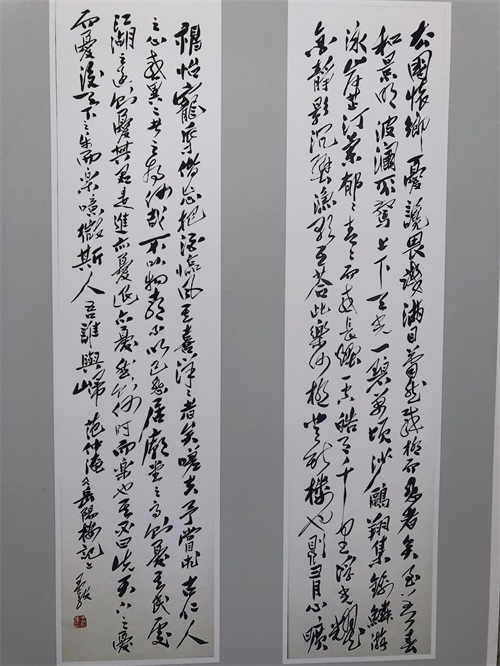 去國懷鄉憂讒畏譏滿目蕭然感極而悲者矣至若春
和景明波瀾不驚上下天光一碧萬頃沙鷗翔集錦鱗游
泳岸芷汀蘭郁々青々而或長煙一空皓月千里浮光耀
金靜影沉璧漁歌互答此樂何極登斯樓也則有心曠
神怡寵辱偕忘把酒臨風其喜洋々者矣嗟夫予嘗求古仁人
之心或異二者之為何哉不以物喜不以己悲居廟堂之高則憂其民處
江湖之遠則憂其君是進亦憂退亦憂然則何時而樂也其必曰先天下之憂
而憂後天下之樂而樂噫微斯人吾誰與歸 范仲淹岳陽樓記